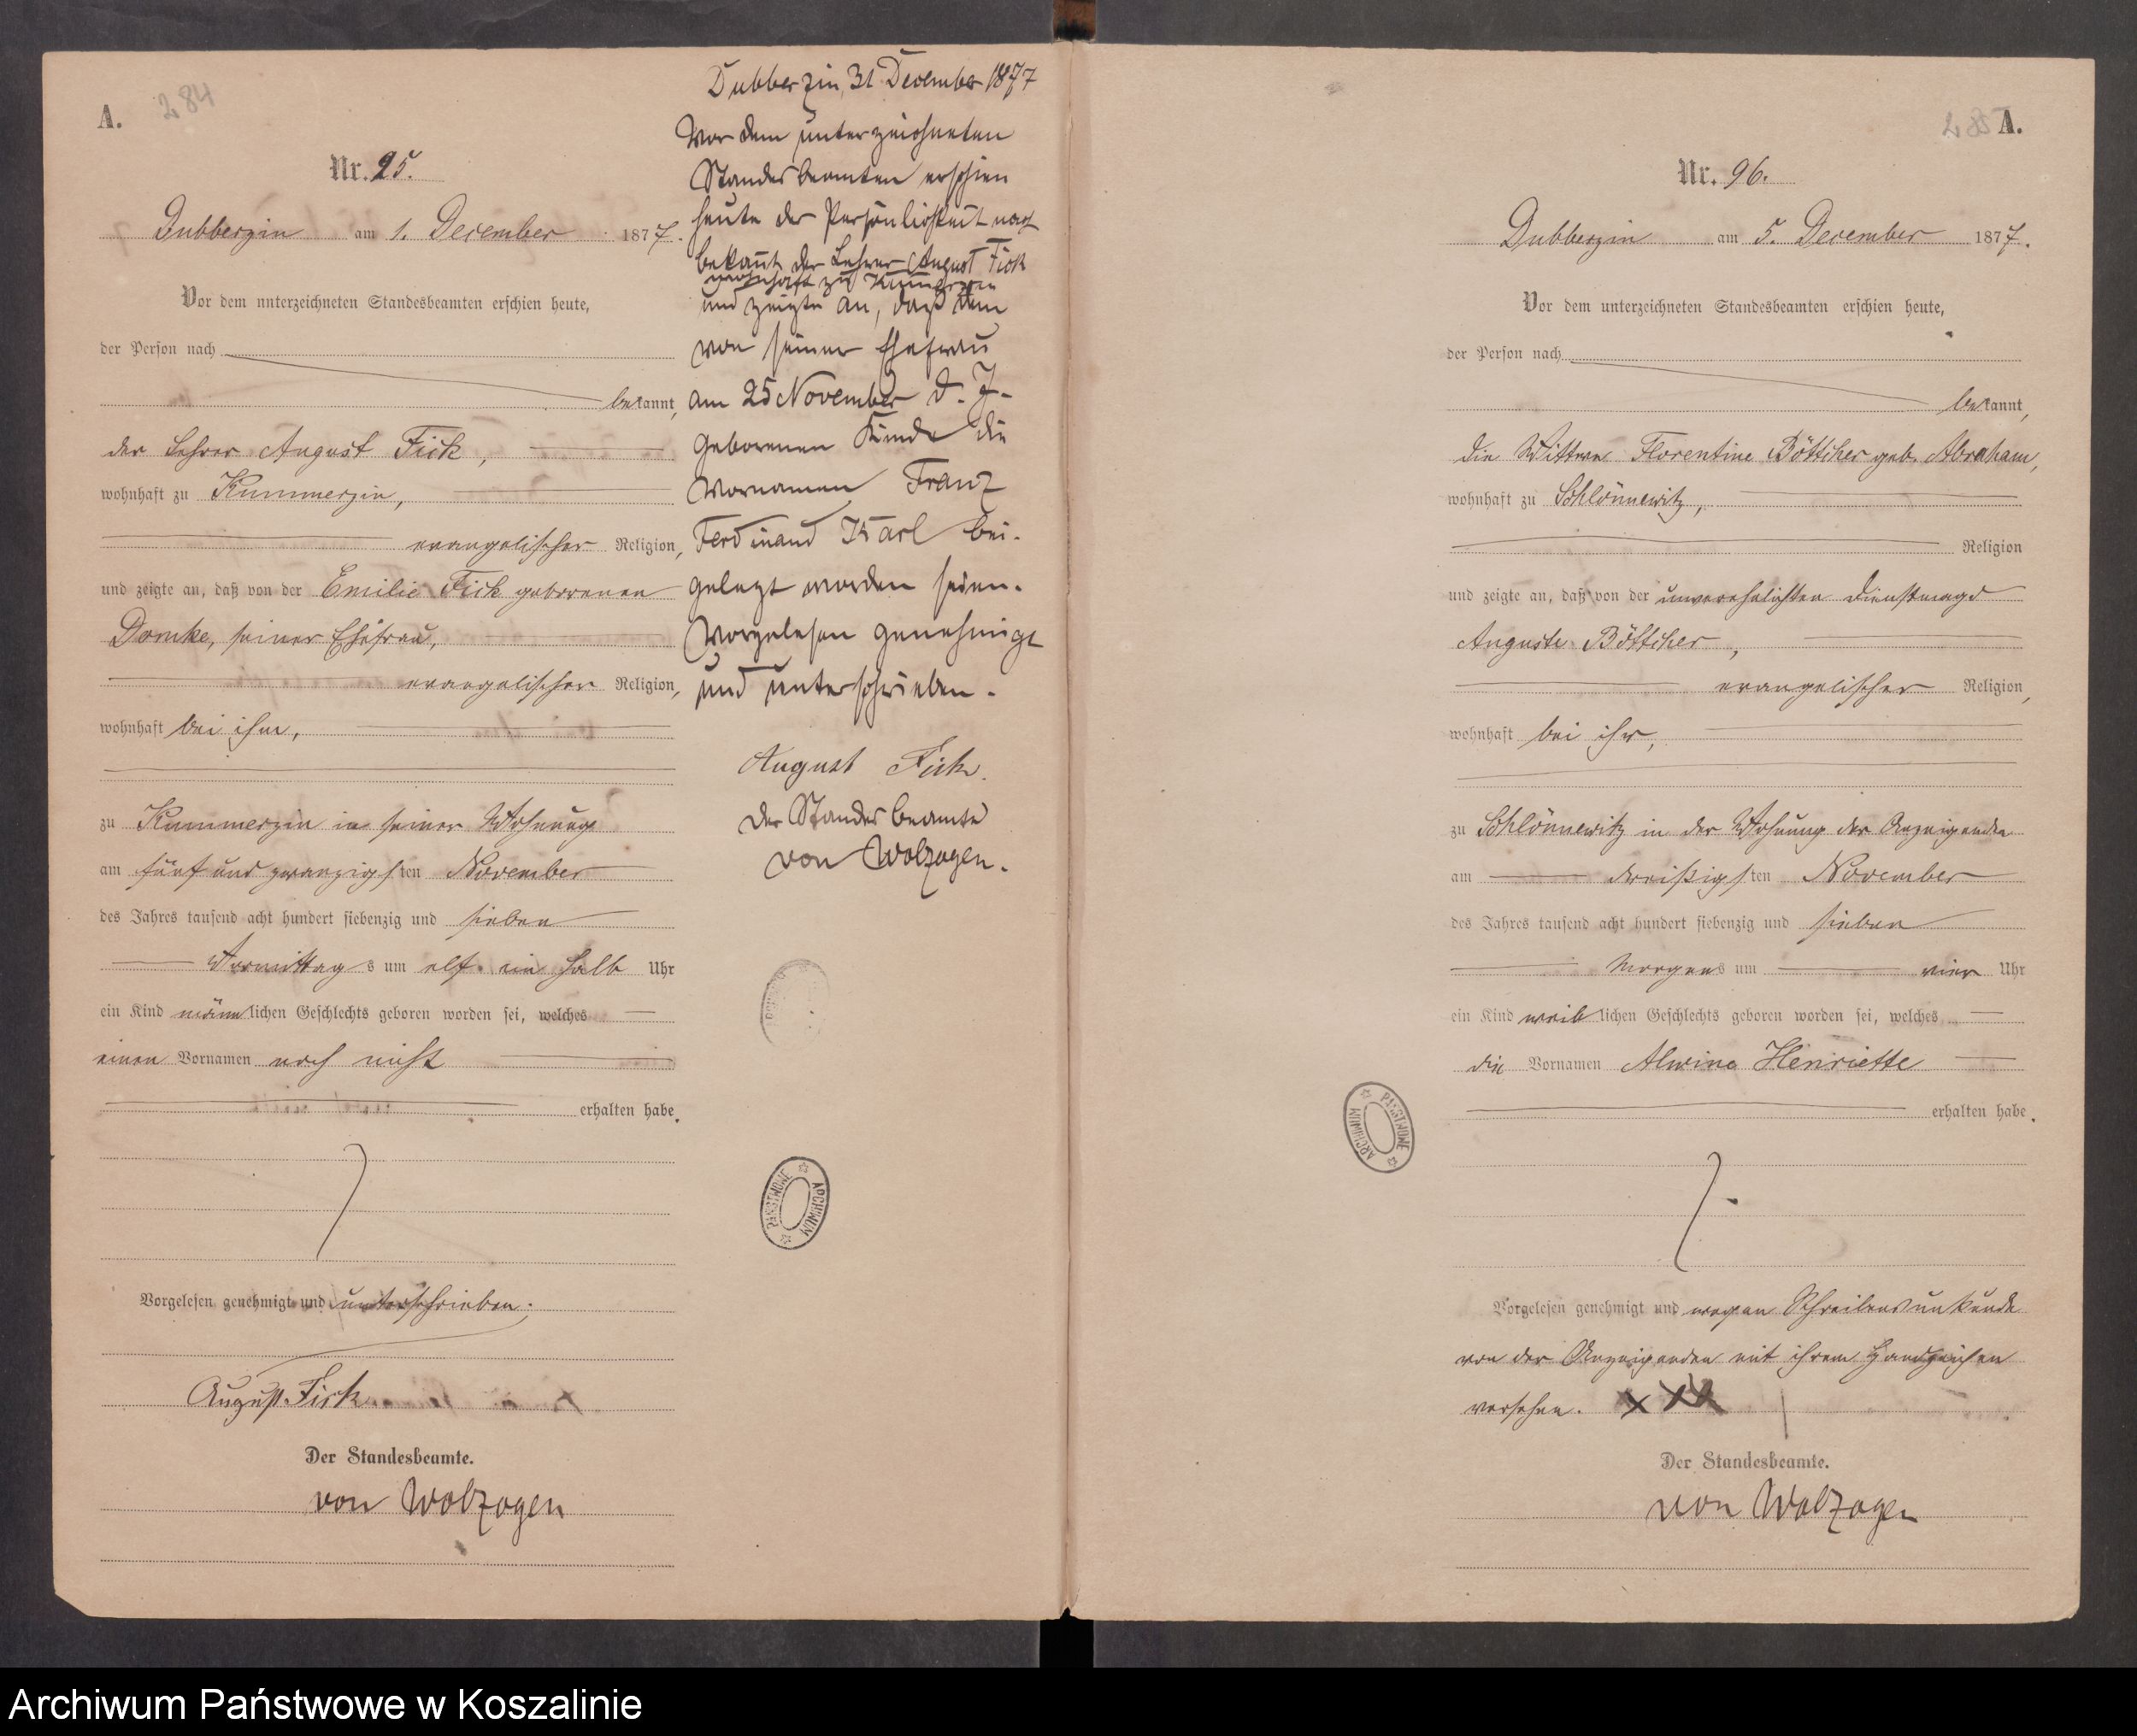 A.
284
Nr. 95.
Dubberzin am 1. December 1877.
Vor dem unterzeichneten Standesbeamten erschien heute,
der Person nach
bekannt,
der Lehrer August Fick,
wohnhaft zu Kummerzin,
evangelischer Religion,
und zeigte an, daß von der Emilie Fick geborenen
Domke, seiner Ehefrau,
evangelischer Religion,
wohnhaft bei ihm,
zu Kummerzin in seiner Wohnung
am fünf und zwanzigsten November
des Jahres tausend acht hundert siebenzig und sieben
Vormittags um elf ein halb Uhr
ein Kind männlichen Geschlechts geboren worden sei, welches
einen Vornamen noch nicht
erhalten habe.
Vorgelesen, genehmigt und unterschrieben.
August Fick
Der Standesbeamte.
von Wolzogen
Dubberzin, 31 December 1877
Vor dem unterzeichneten
Standesbeamten erschien
heute der Persönlichkeit nach
bekannt der Lehrer August Fick
wohnhaft zu Kummerzin
und zeigte an, daß dem
von seiner Ehefrau
am 25 November d. J.
geborenen Kinde die
Vornamen Franz
Ferdinand Karl bei-
gelegt worden seien.
Vorgelesen genehmigt
und unterschrieben.
August Fick.
Der Standesbeamte
von Wolzogen.
ARCHIWUM PAŃSTWOWE
285 A.
Nr. 96.
Dubberzin am 5. December 1877.
Vor dem unterzeichneten Standesbeamten erschien heute,
der Person nach
bekannt,
die Wittwe Florentine Böttcher geb. Abraham,
wohnhaft zu Schlönnewitz,
Religion
und zeigte an, daß von der unverehelichten Dienstmagd
Auguste Böttcher,
evangelischer Religion,
wohnhaft bei ihr,
zu Schlönnewitz in der Wohnung der Anzeigenden
am dreißigsten November
des Jahres tausend acht hundert siebenzig und sieben
Morgens um vier Uhr
ein Kind weiblichen Geschlechts geboren worden sei, welches
die Vornamen Alwine Henriette
erhalten habe.
ARCHIWUM PAŃSTWOWE
Vorgelesen genehmigt und wegen Schreibensunkunde
von der Anzeigenden mit ihrem Handzeichen
versehen. XXX
Der Standesbeamte.
von Wolzogen
Archiwum Państwowe w Koszalinie